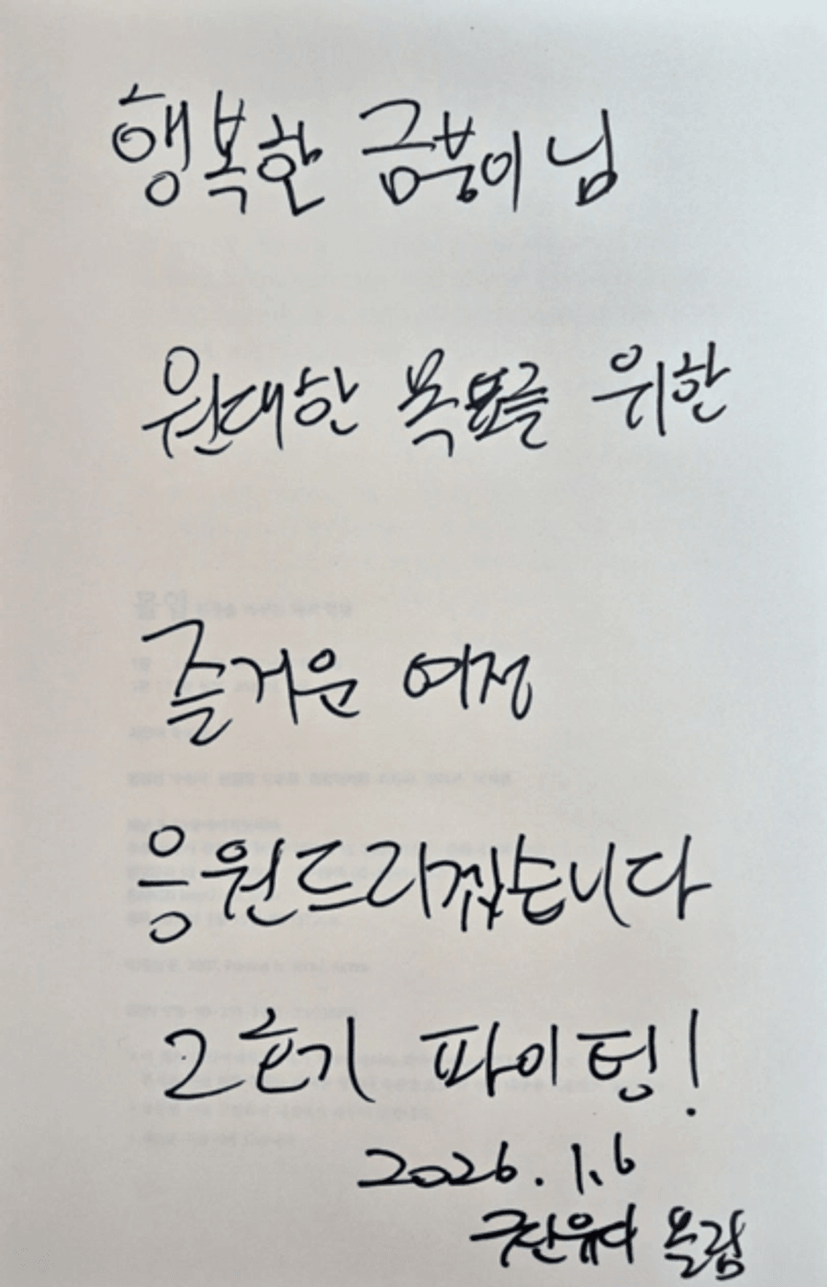 행복한 금붕이 님
원대한 목표를 위한
즐거운 여정
응원드리겠습니다
2호기 파이팅!
2026. 1. 6